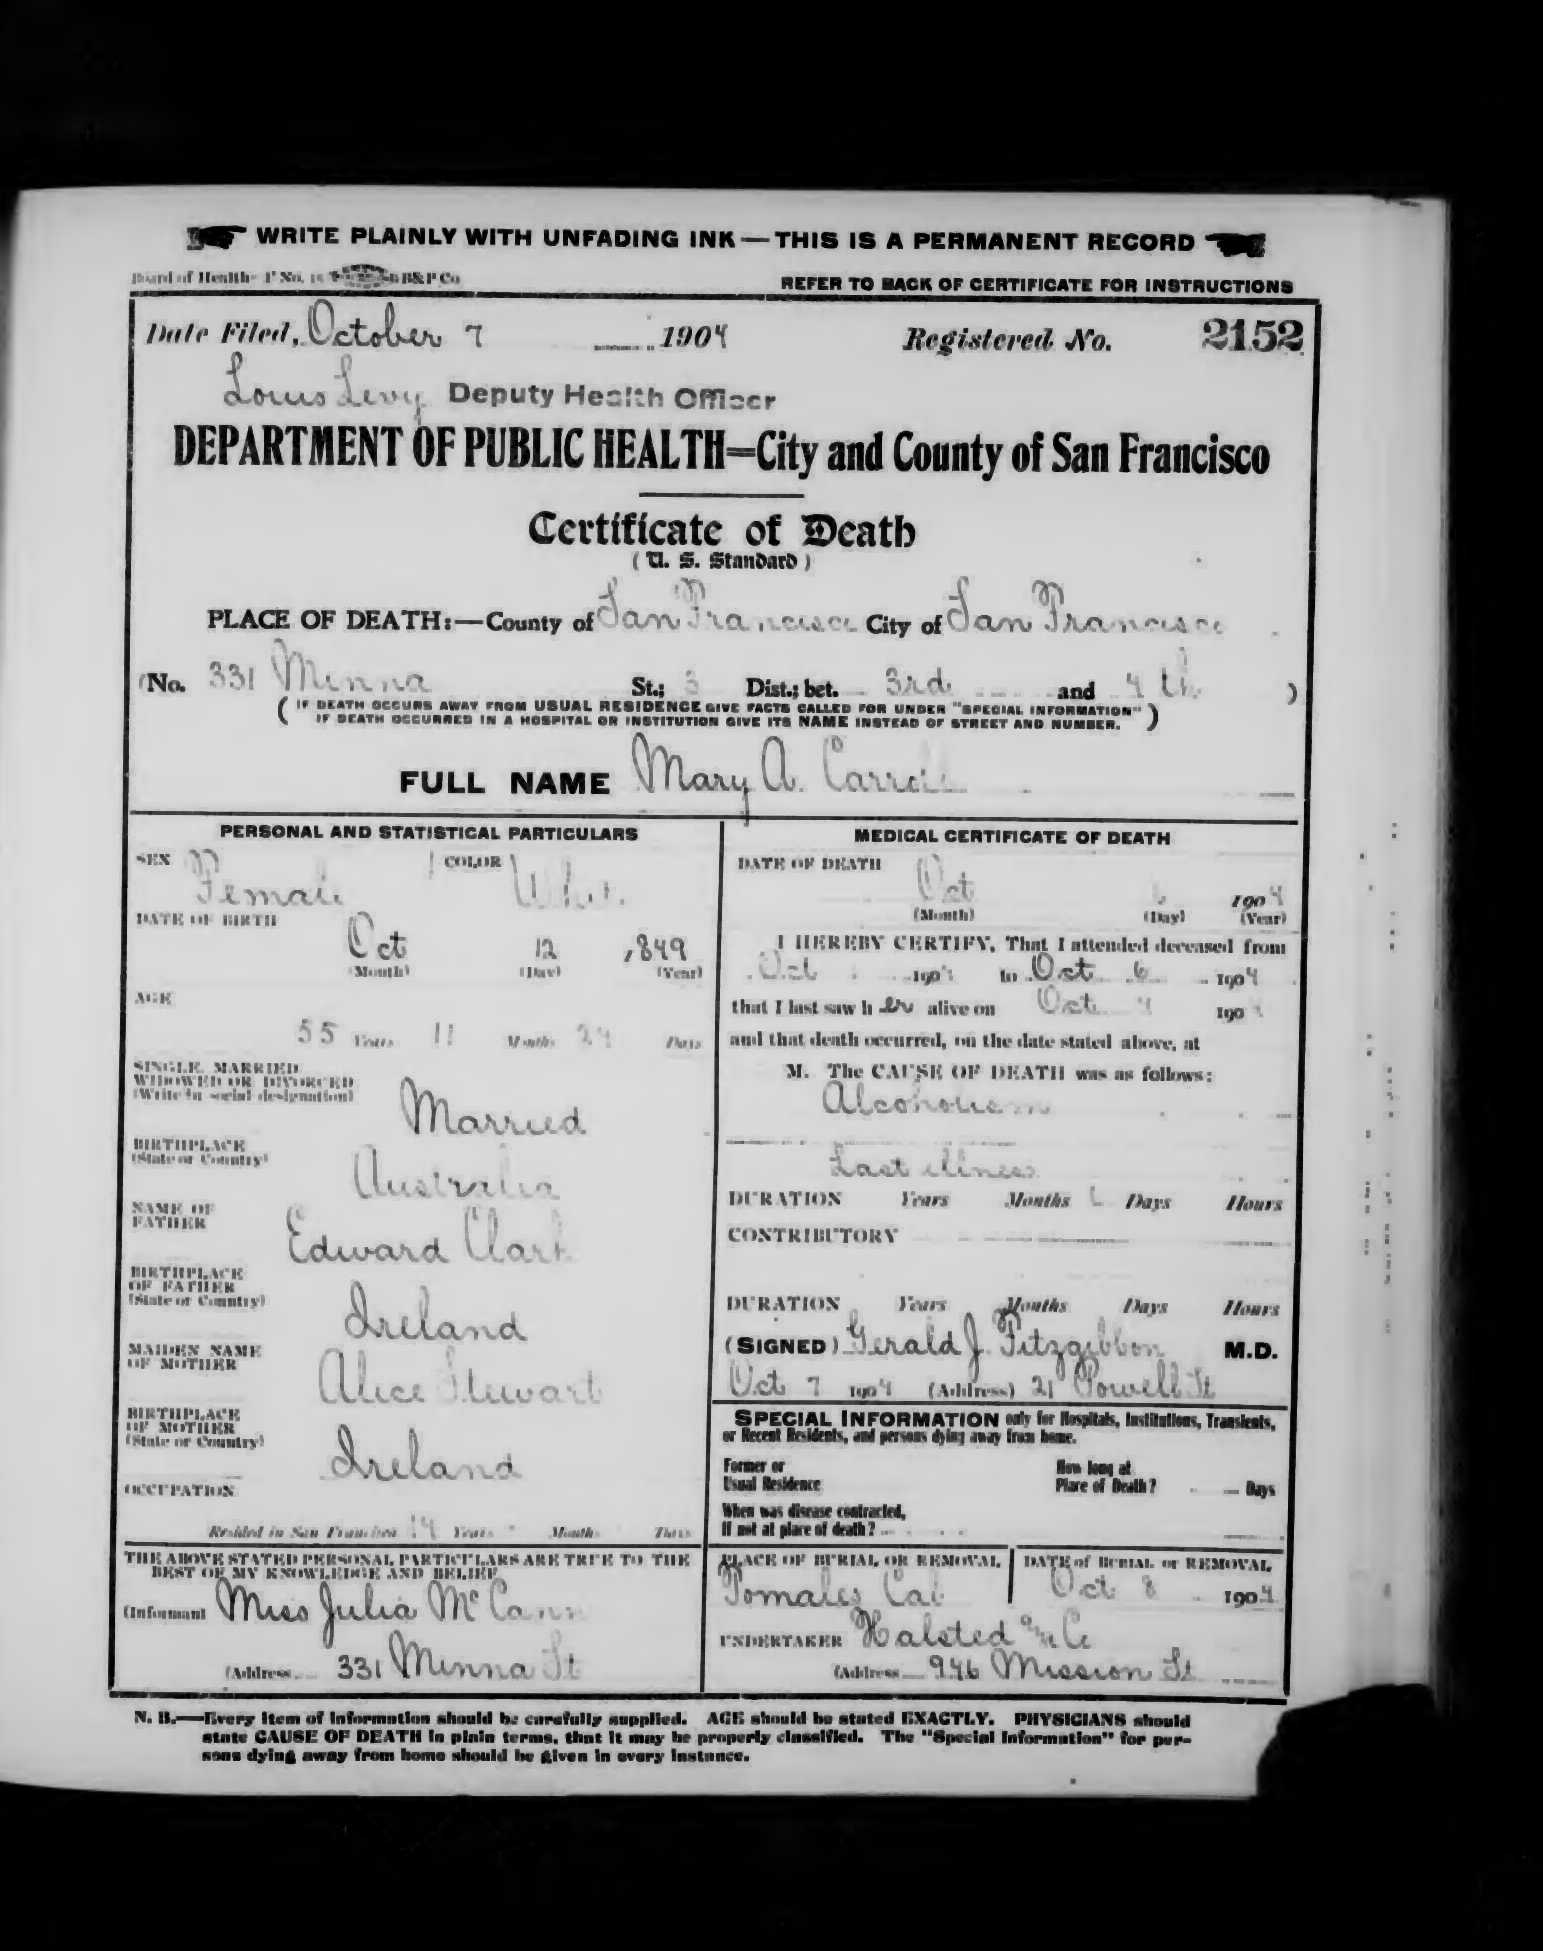 WRITE PLAINLY WITH UNFADING INK — THIS IS A PERMANENT RECORD
Board of Health—F No. 15 B&P Co
REFER TO BACK OF CERTIFICATE FOR INSTRUCTIONS
Date Filed, October 7 1904 Registered No. 2152
Louis Levy Deputy Health Officer
DEPARTMENT OF PUBLIC HEALTH=City and County of San Francisco
Certificate of Death
( U. S. Standard )
PLACE OF DEATH:—County of San Francisco City of San Francisco
(No. 331 Minna St.; 3 Dist.; bet. 3rd and 4th )
( IF DEATH OCCURS AWAY FROM USUAL RESIDENCE GIVE FACTS CALLED FOR UNDER "SPECIAL INFORMATION"
IF DEATH OCCURRED IN A HOSPITAL OR INSTITUTION GIVE ITS NAME INSTEAD OF STREET AND NUMBER. )
FULL NAME Mary A. Carroll
PERSONAL AND STATISTICAL PARTICULARS
SEX Female COLOR White
DATE OF BIRTH
Oct 12 1849
(Month) (Day) (Year)
AGE
55 Years 11 Months 24 Days
SINGLE, MARRIED
WIDOWED OR DIVORCED
(Write in social designation)
Married
BIRTHPLACE
(State or Country)
Australia
NAME OF
FATHER
Edward Clark
BIRTHPLACE
OF FATHER
(State or Country)
Ireland
MAIDEN NAME
OF MOTHER
Alice Stewart
BIRTHPLACE
OF MOTHER
(State or Country)
Ireland
OCCUPATION
Resided in San Francisco 14 Years Months Days
THE ABOVE STATED PERSONAL PARTICULARS ARE TRUE TO THE
BEST OF MY KNOWLEDGE AND BELIEF
(Informant Miss Julia McCann
(Address 331 Minna St
MEDICAL CERTIFICATE OF DEATH
DATE OF DEATH
Oct 6 1904
(Month) (Day) (Year)
I HEREBY CERTIFY, That I attended deceased from
Oct 1904 to Oct 6 1904
that I last saw her alive on Oct 4 1904
and that death occurred, on the date stated above, at
M. The CAUSE OF DEATH was as follows:
Alcoholism
Last illness
DURATION Years Months 6 Days Hours
CONTRIBUTORY
DURATION Years Months Days Hours
(SIGNED) Gerald J. Fitzgibbon M.D.
Oct 7 1904 (Address) 21 Powell St
SPECIAL INFORMATION only for Hospitals, Institutions, Transients,
or Recent Residents, and persons dying away from home.
Former or
Usual Residence
How long at
Place of Death? Days
When was disease contracted,
If not at place of death?
PLACE OF BURIAL OR REMOVAL
Pomales Cal
DATE of BURIAL or REMOVAL
Oct 8 1904
UNDERTAKER Halsted & Co
(Address 946 Mission St
N. B.—Every item of information should be carefully supplied. AGE should be stated EXACTLY. PHYSICIANS should
state CAUSE OF DEATH in plain terms, that it may be properly classified. The "Special Information" for per-
sons dying away from home should be given in every instance.